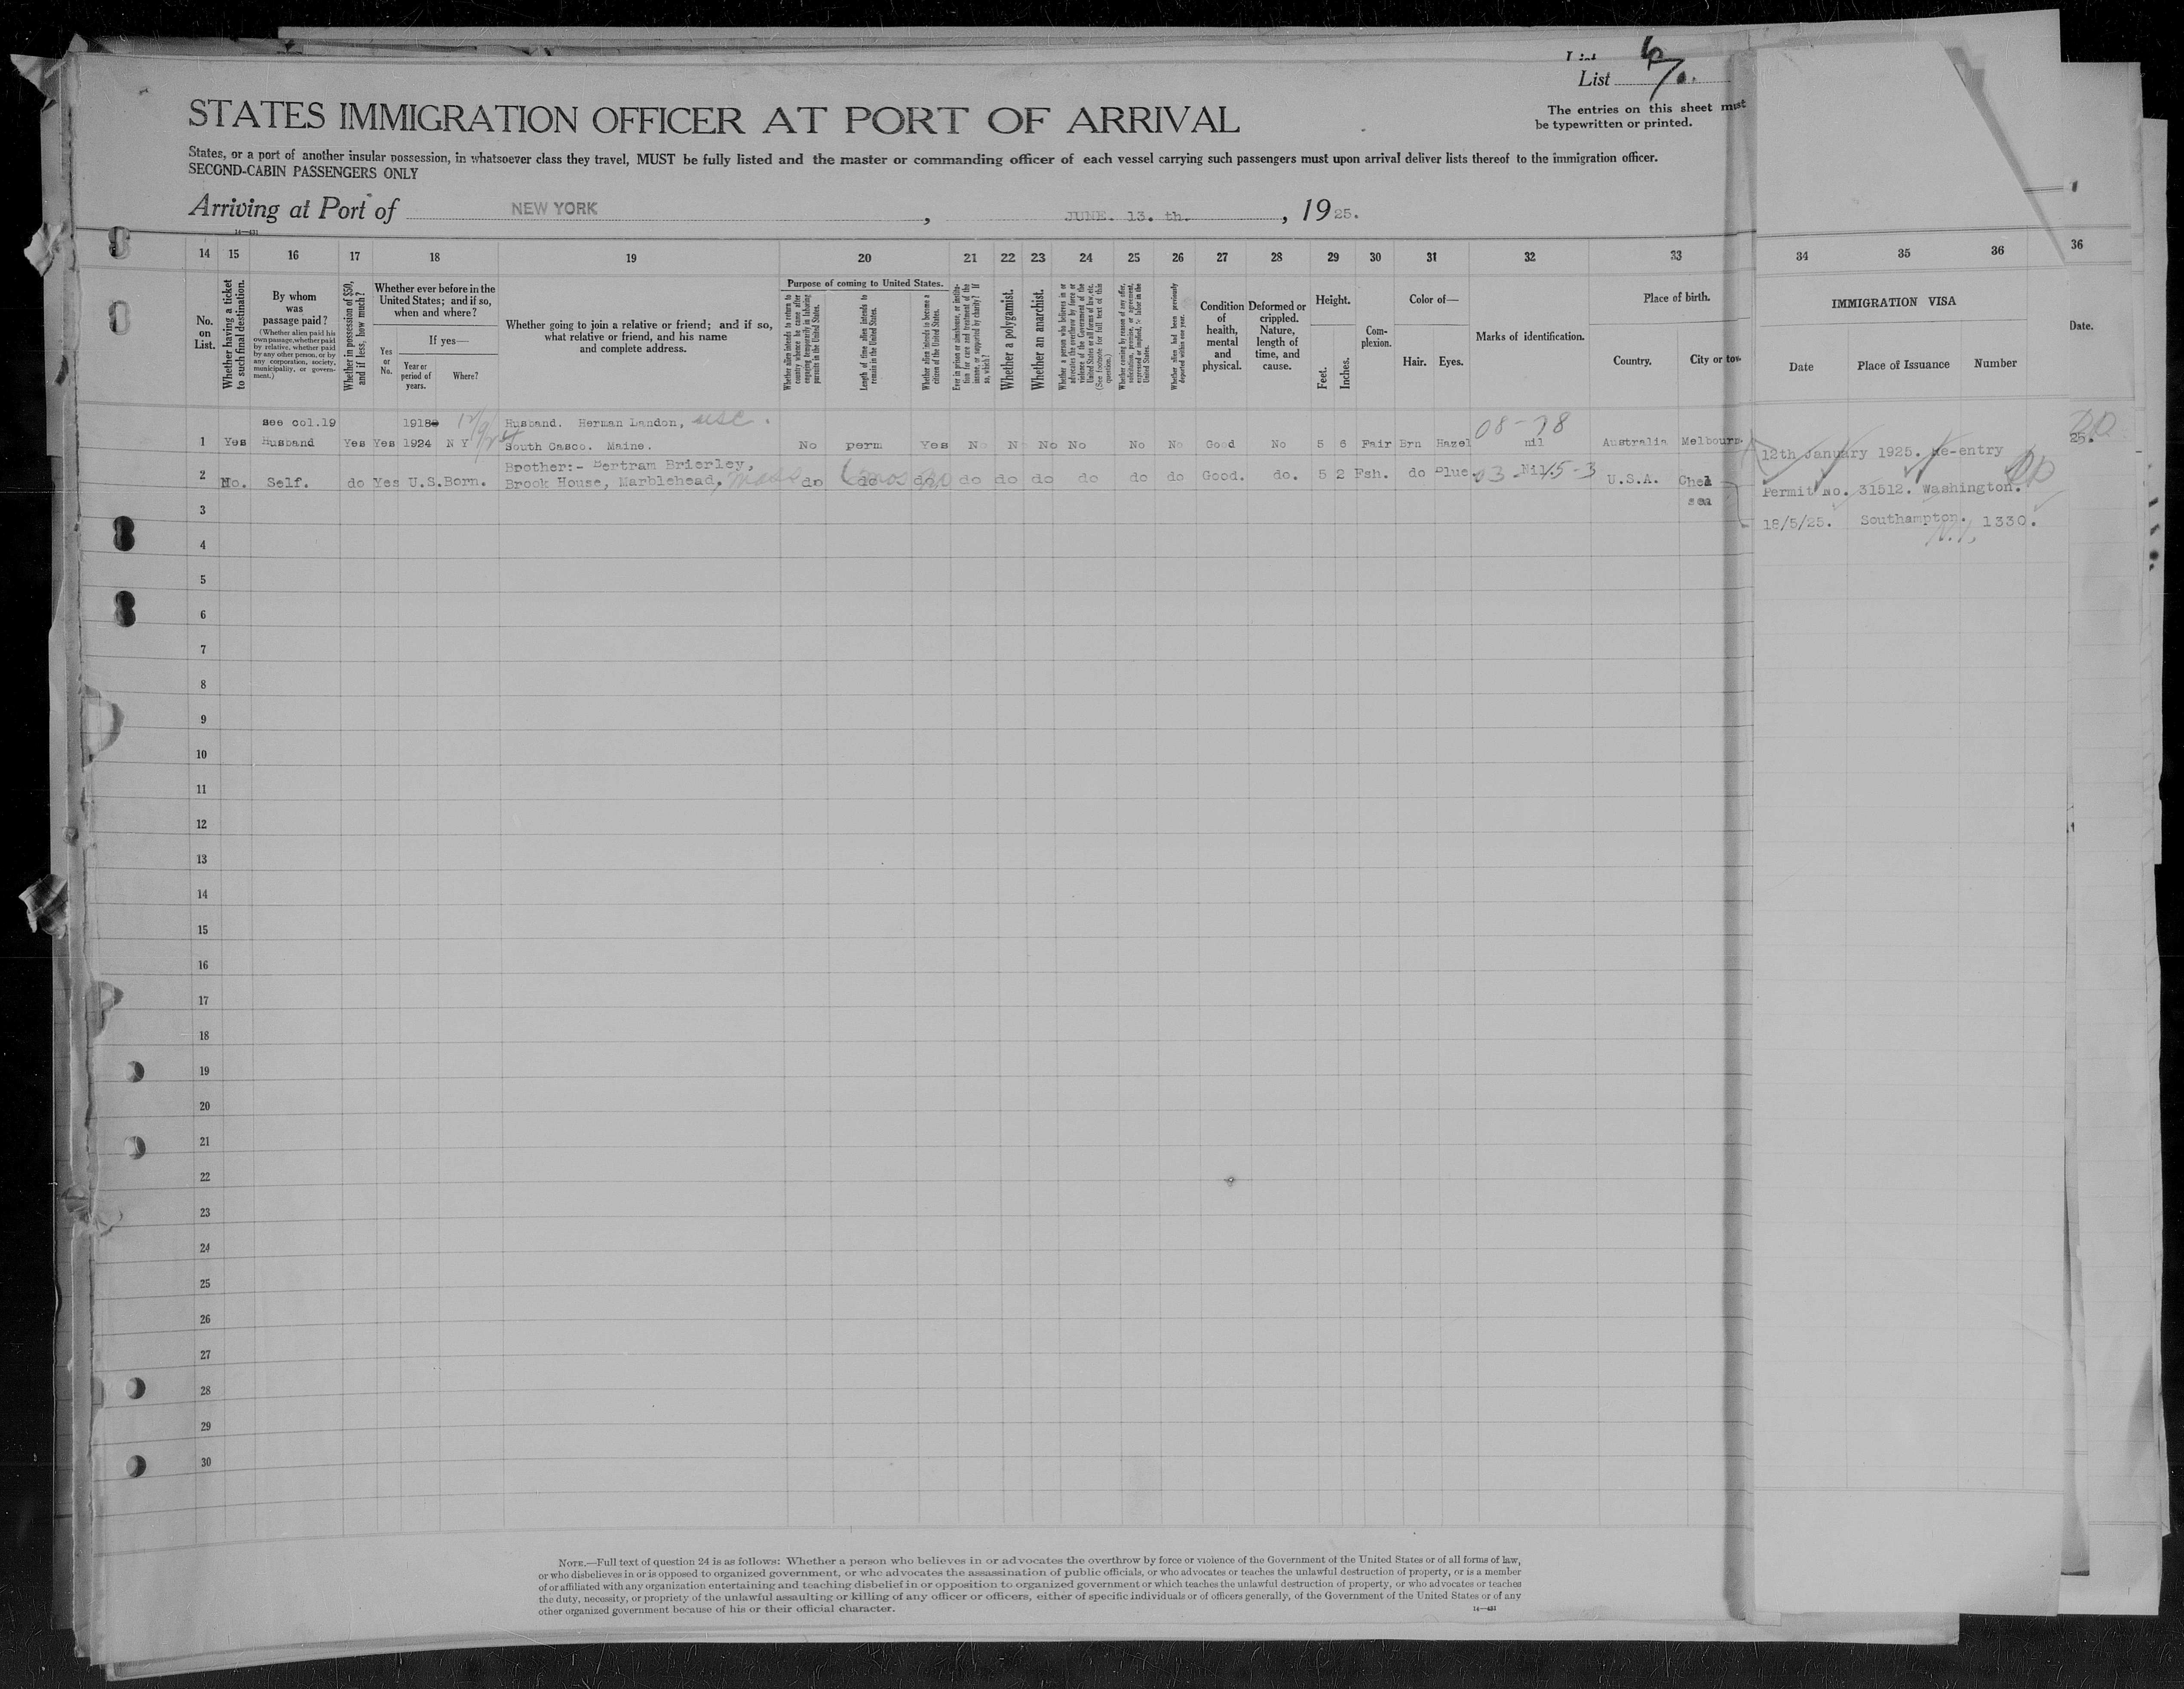 List 6/10.
The entries on this sheet must
be typewritten or printed.
STATES IMMIGRATION OFFICER AT PORT OF ARRIVAL
States, or a port of another insular possession, in whatsoever class they travel, MUST be fully listed and the master or commanding officer of each vessel carrying such passengers must upon arrival deliver lists thereof to the immigration officer.
SECOND-CABIN PASSENGERS ONLY
Arriving at Port of NEW YORK, JUNE. 13. th., 1925.
14—431
14 15 16 17 18 19 20 21 22 23 24 25 26 27 28 29 30 31 32 33 34 35 36 36
No. on List.
Whether having a ticket to such final destination.
By whom was passage paid?
(Whether alien paid his own passage, whether paid by relative, whether paid by any other person, or by any corporation, society, municipality, or government.)
Whether in possession of $50, and if less, how much?
Whether ever before in the United States; and if so, when and where?
Yes or No.
If yes—
Year or period of years.
Where?
Whether going to join a relative or friend; and if so, what relative or friend, and his name and complete address.
Purpose of coming to United States.
Whether alien intends to return to country whence he came after engaging temporarily in laboring pursuits in the United States.
Length of time alien intends to remain in the United States.
Whether alien intends to become a citizen of the United States.
Ever in prison or almshouse, or institution for care and treatment of the insane, or supported by charity? If so, which?
Whether a polygamist.
Whether an anarchist.
Whether a person who believes in or advocates the overthrow by force or violence of the Government of the United States or all forms of law, etc. (See footnote for full text of this question.)
Whether coming by reason of any offer, solicitation, promise, or agreement, expressed or implied, to labor in the United States.
Whether alien had been previously deported within one year.
Condition of health, mental and physical.
Deformed or crippled. Nature, length of time, and cause.
Height.
Feet.
Inches.
Complexion.
Color of—
Hair.
Eyes.
Marks of identification.
Place of birth.
Country.
City or tow
IMMIGRATION VISA
Date
Place of Issuance
Number
Date.
see col.19 1918 12/9/24 Husband. Herman Landon, USC. 08-78
1 Yes Husband Yes Yes 1924 N Y South Casco. Maine. No perm Yes No N No No No No Good No 5 6 Fair Brn Hazel nil Australia Melbourn
25.
12th January 1925. Re-entry
Brother:- Bertram Brierley,
2 No. Self. do Yes U.S.Born. Brook House, Marblehead, Mass do do 6 mos do no do do do do do do Good. do. 5 2 Fsh. do Blue Nil U.S.A. Chel
sea
Permit no. 31512. Washington.
18/5/25. Southampton. 1330.
N.Y.
3
4
5
6
7
8
9
10
11
12
13
14
15
16
17
18
19
20
21
22
23
24
25
26
27
28
29
30
NOTE.—Full text of question 24 is as follows: Whether a person who believes in or advocates the overthrow by force or violence of the Government of the United States or of all forms of law,
or who disbelieves in or is opposed to organized government, or who advocates the assassination of public officials, or who advocates or teaches the unlawful destruction of property, or is a member
of or affiliated with any organization entertaining and teaching disbelief in or opposition to organized government or which teaches the unlawful destruction of property, or who advocates or teaches
the duty, necessity, or propriety of the unlawful assaulting or killing of any officer or officers, either of specific individuals or of officers generally, of the Government of the United States or of any
other organized government because of his or their official character.
14—431